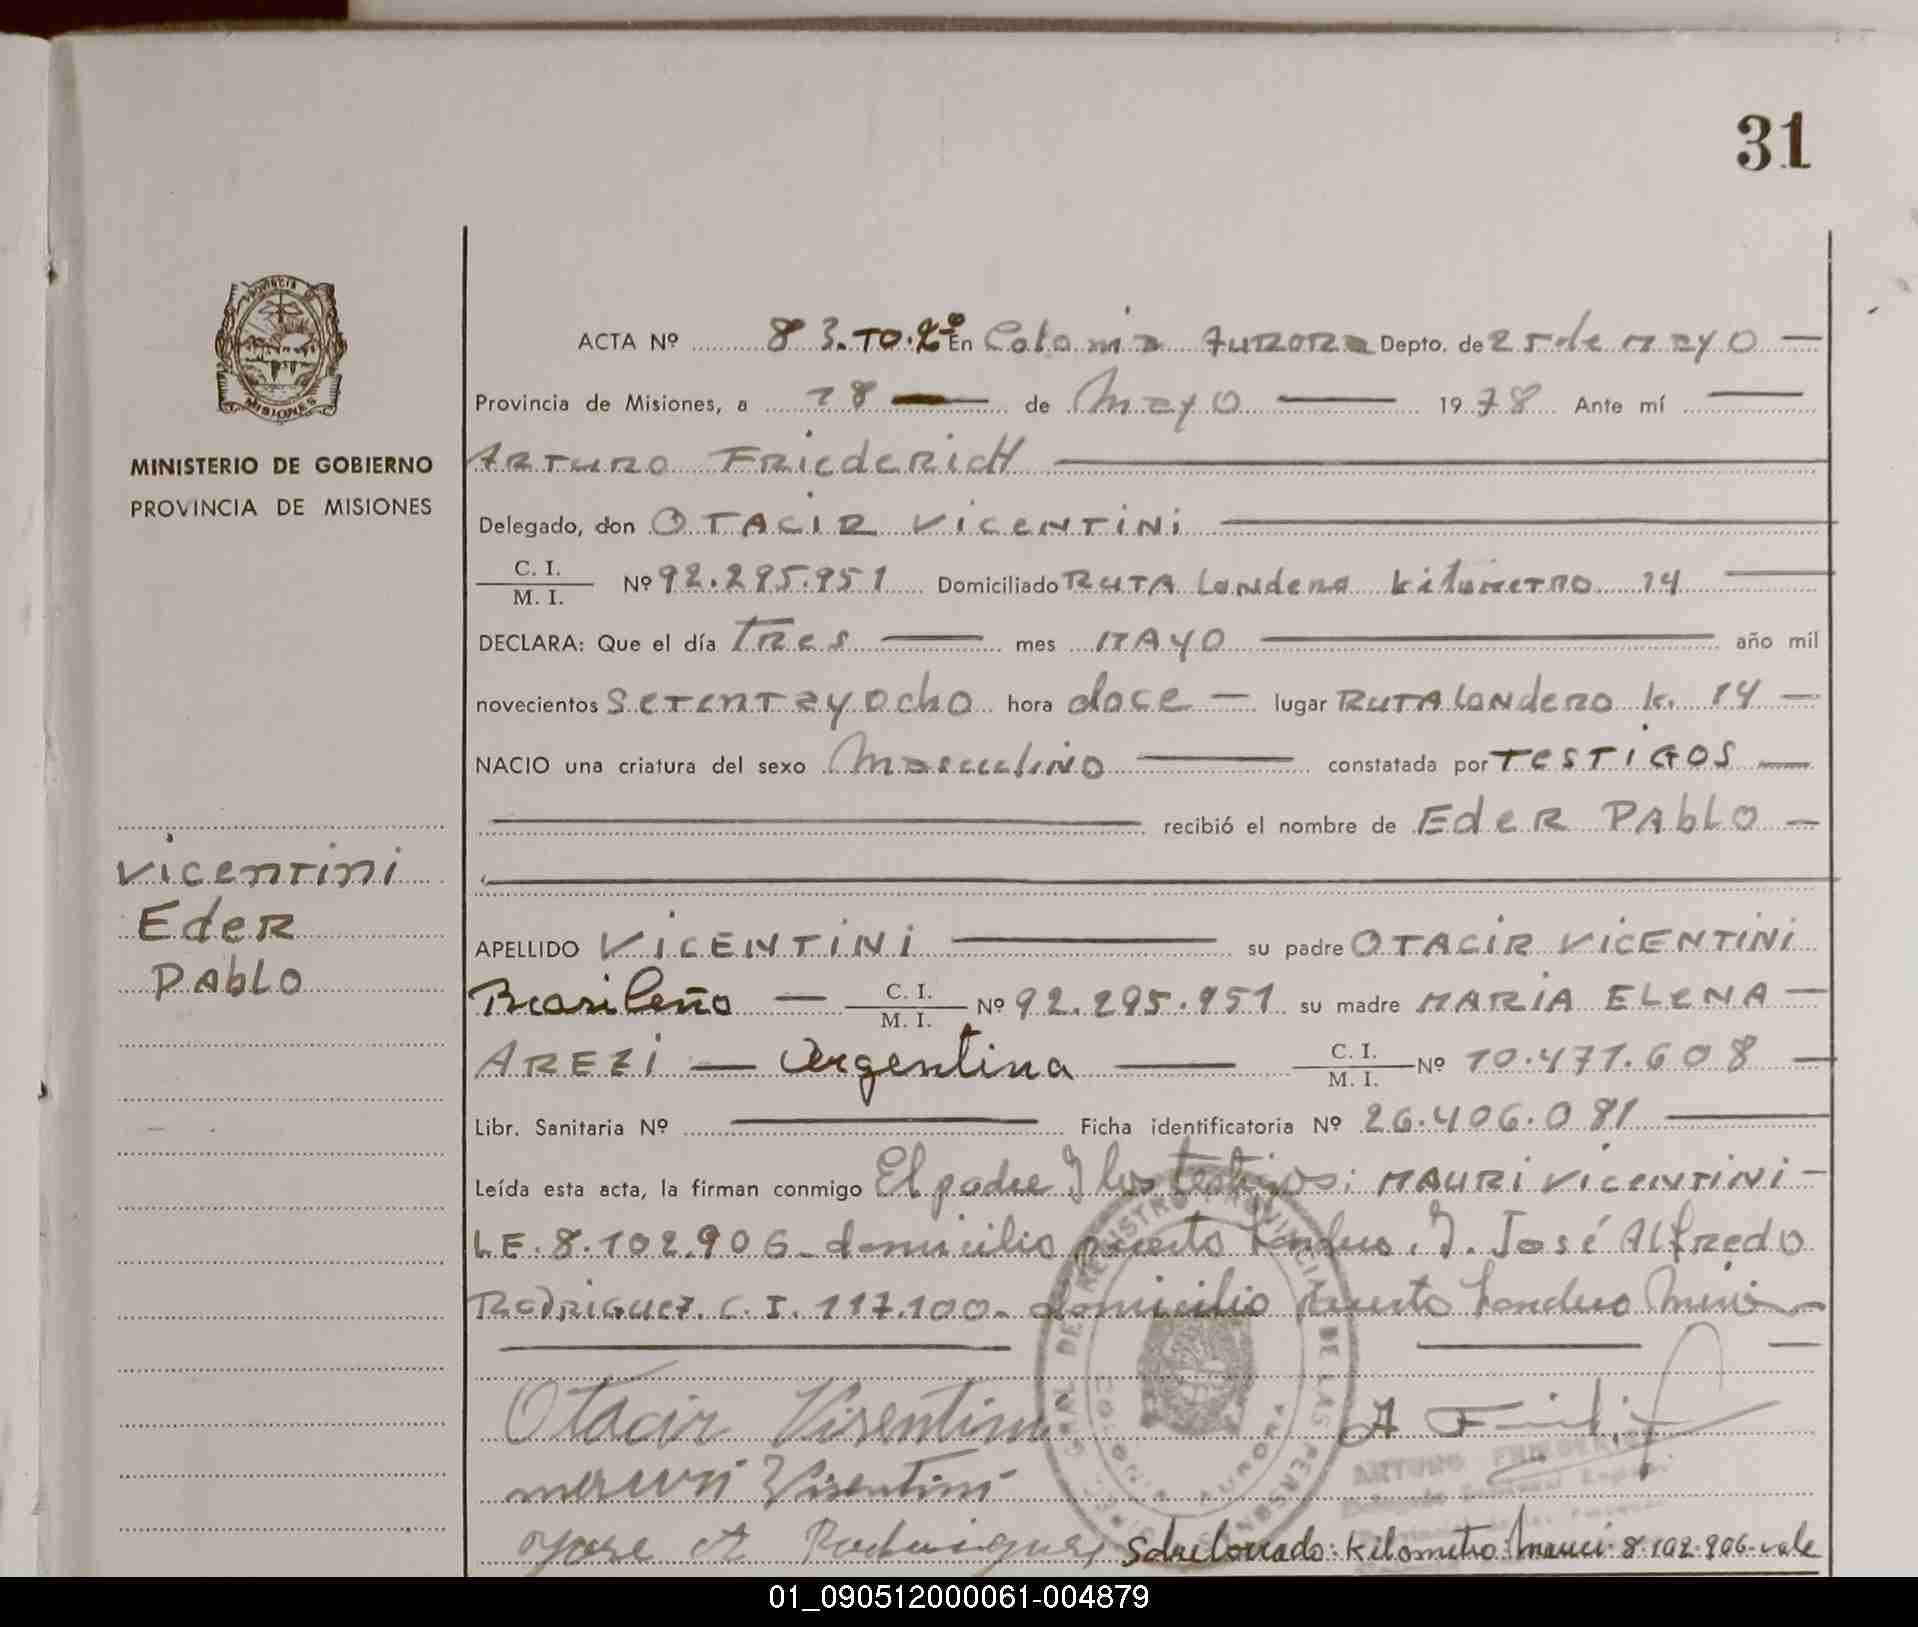 31
PROVINCIA DE
MISIONES
MINISTERIO DE GOBIERNO
PROVINCIA DE MISIONES
Vicentini
Eder
Pablo
ACTA Nº 83. TO. 2º En Colonia Aurora Depto. de 25 de mayo
Provincia de Misiones, a 18 de Mayo 1978 Ante mí
Arturo Friederich
Delegado, don OTACIR VICENTINI
C. I. / M. I. Nº 92.295.951 Domiciliado RUTA Londero kilometro 14
DECLARA: Que el día Tres mes MAYO año mil
novecientos setenta y ocho hora doce lugar RUTA Londero k. 14
NACIO una criatura del sexo Masculino constatada por TESTIGOS
recibió el nombre de Eder Pablo
APELLIDO VICENTINI su padre OTACIR VICENTINI
Brasileño C. I. / M. I. Nº 92.295.951 su madre MARIA ELENA
AREZI Argentina C. I. / M. I. Nº 10.471.608
Libr. Sanitaria Nº Ficha identificatoria Nº 26.406.081
Leída esta acta, la firman conmigo El padre y los testigos; MAURI VICENTINI
LE. 8.102.906 domicilio puerto Londero. Y. José Alfredo
Rodriguez. C. I. 117.100 domicilio Puerto Londero
Otacir Visentini
Visentini
Jose A Rodriguez
REGISTRO PROVINCIAL DE LAS PERSONAS
COLONIA AURORA
ARTURO FRIEDERICH
Sobreborrado: kilometro: Mauri: 8.102.906. vale
01_090512000061-004879